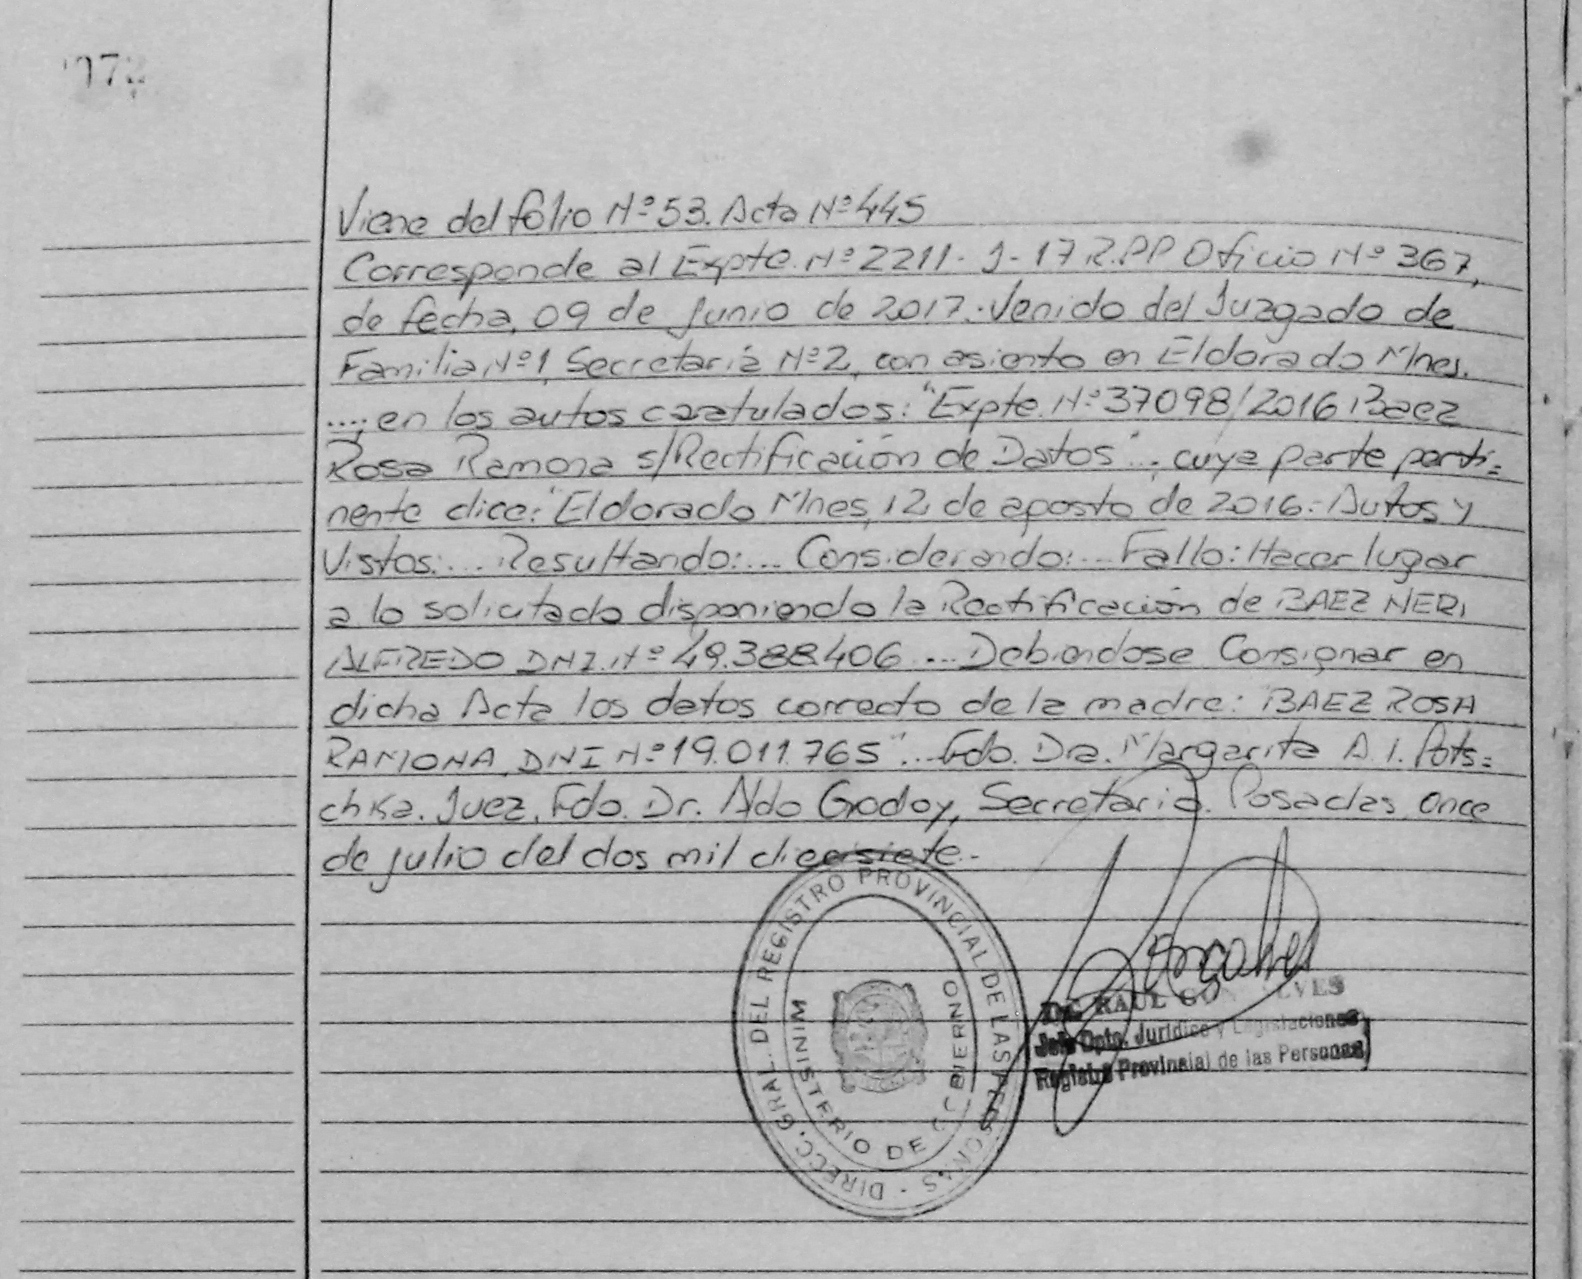 072
Viene del folio Nº 53. Acta Nº 445
Corresponde al Expte. Nº 2211 - J - 17 R.P.P Oficio Nº 367,
de fecha, 09 de Junio de 2017.- Venido del Juzgado de
Familia Nº 1, Secretaría Nº 2, con asiento en Eldorado Mnes.
....; en los autos caratulados: "Expte. Nº 37098/2016 Baez
Rosa Ramona s/Rectificación de Datos"..; cuya parte perti=
nente dice: "Eldorado Mnes, 12, de agosto de 2016.- Autos y
Vistos:... Resultando:... Considerando:... Fallo: Hacer lugar
a lo solicitado disponiendo la Rectificación de BAEZ NERI
ALFREDO DNI. Nº 49.388.406 ... Debiendose Consignar en
dicha Acta los datos correcto de la madre: BAEZ ROSA
RAMONA, DNI Nº 19.011.765"... Fdo. Dra. Margarita A. I. Pots=
chka. Juez. Fdo. Dr. Aldo Godoy, Secretario. Posadas, once
de julio del dos mil diecisiete.-
DIRECC. GRAL. DEL REGISTRO PROVINCIAL DE LAS PERSONAS -
MINISTERIO DE GOBIERNO
RAUL GONCALVES
Jefe Dpto. Jurídico y Legislaciones
Registro Provincial de las Personas